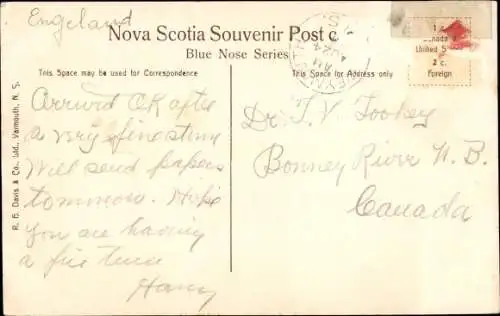 Engeland
Nova Scotia Souvenir Post c
Blue Nose Series
This Space may be used for Correspondence
This Space for Address only
1 c.
Canada
United S
2 c.
Foreign
WEYMOUTH
AM
AU 24
N.S.
Arrived OK after
a very fine time
Will send papers
tomorrow. Hope
you are having
a fine time
Harry
Dr. T. V. Tookey
Bonney River N. B.
Canada
R. H. Davis & Co. Ltd., Yarmouth, N. S.